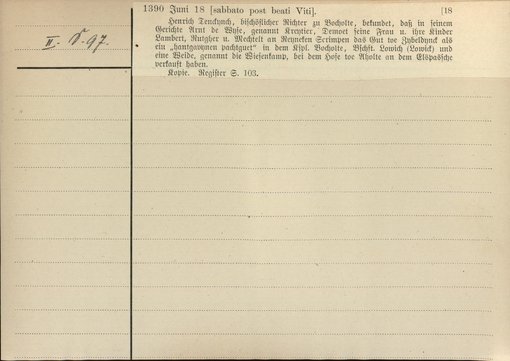 1390 Juni 18 [sabbato post beati Viti]. [18
Henrich Denckynch, bischöflicher Richter zu Bocholte, bekundet, daß in seinem
Gerichte Arnt de Wyse, genannt Kreytier, Demoet seine Frau u. ihre Kinder
Lambert, Rutgher u. Mechtelt an Reyneken Scrimpen das Gut toe Zybeldynck als
ein „hantgawynen pachtguet“ in dem Kspl. Bocholte, Bschft. Lowich (Lowick) und
eine Weide, genannt die Wiesenkamp, bei dem Hofe toe Aholte an dem Elspassche
verkauft haben.
Kopie. Register S. 103.
II. S. 97.